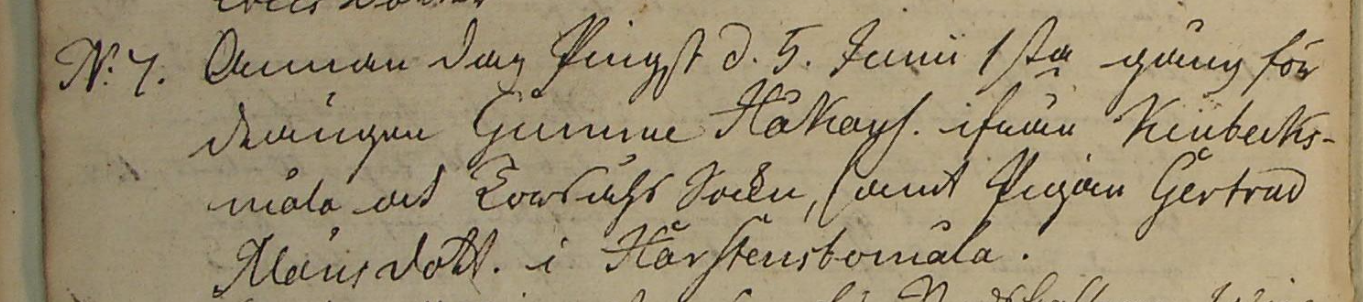 N: 7. Annan dag Pingst d. 5. Junii 1sta gång för
drängen Gumme Håkans. ifrån Kinbecks-
måla Socken, samt Pigan Gertrud
Månsdott. i Harstensbomåla.